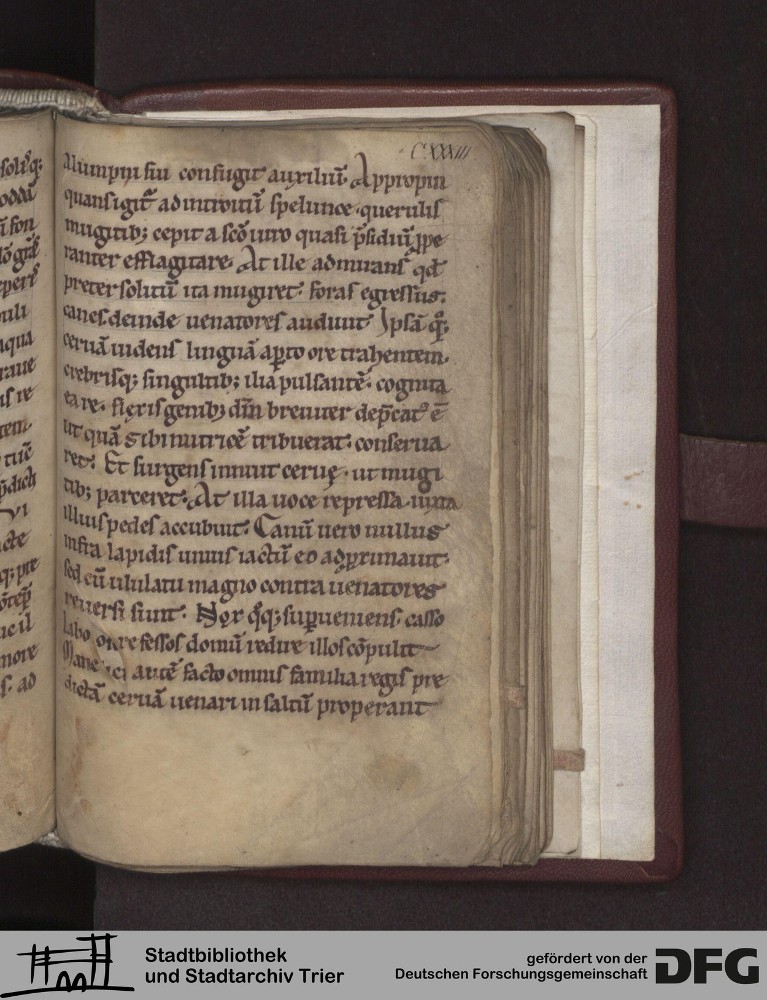 solit9q;
CXXXIII
Alumpni sui confugit auxiliū. Appropin
quans igit᷑ ad introitū spelunce querulis
mugitib; cepit a scō uiro quasi p̄sidiū ꝓpe
ranter efflagitare. At ille admirans qđ
preter solitū ita mugiret. foras egressus.
canes deinde uenatores audiuit. Ipsā q̄;
ceruā uidens linguā aꝑto ore trahentem.
crebrisq; singultib; ilia pulsantē. cognita
ea re. flexis genib; dn̄m breuiter dep̄cat9 ē
ut quā sibi nutricē tribuerat. conserua
ret. Et surgens innuit ceruę. ut mugi
tib; parceret. At illa uoce repressa iuxta
illius pedes accubuit. Canū uero nullus
infra lapidis unius iactū eo adꝓximauit.
sed cū ululatu magno contra uenatores
reuersi sunt. Nox q̄q; suꝑueniens. casso
labore fessos domū redire illos cōpulit
Mane autē facto omnis familia regis pre
dictā ceruā uenari in saltū properant
Stadtbibliothek
und Stadtarchiv Trier
gefördert von der
Deutschen Forschungsgemeinschaft
DFG